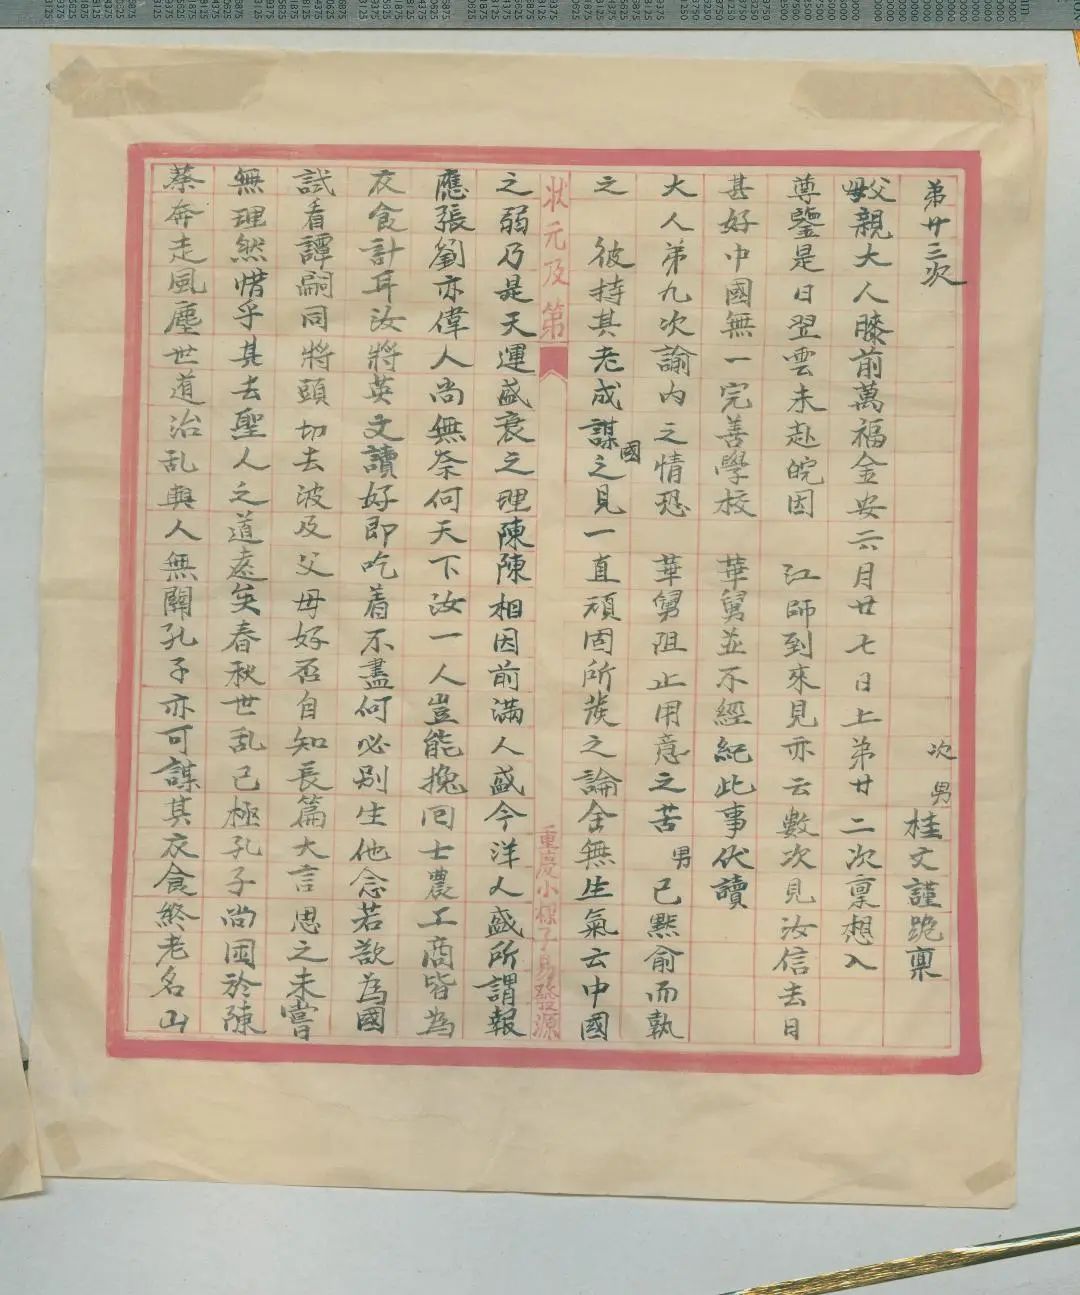 第廿三次
次男桂文謹跪禀
父母親大人膝前萬福金安六月廿七日上第廿二次禀想入
尊鑒是日翌雲未赴皖因 江師到來見亦云數次見汝信去日
甚好中國無一完善學校 華舅並不經紀此事伏讀
大人第九次諭内之情恐 華舅阻止用意之苦男已默俞而執
之 彼持其老成謀國之見一直頑固所發之論全無生氣云中國
狀元及第
重慶小樑子易發源
之弱乃是天運盛衰之理陳陳相因前滿人盛今洋人盛所謂報
應張劉亦偉人尚無奈何天下汝一人豈能挽回士農工商皆為
衣食計耳汝將英文讀好即吃着不盡何必别生他念若欲為國
試看譚嗣同將頭切去波及父母好否自知長篇大言思之未嘗
無理然惜乎其去聖人之道遠矣春秋世乱已極孔子尚困於陳
蔡奔走風塵世道治乱與人無關孔子亦可謀其衣食終老名山